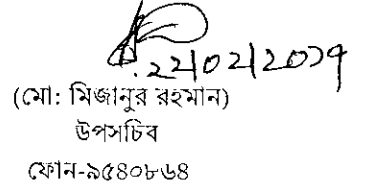 22/02/2017
(মো: মিজানুর রহমান)
উপসচিব
ফোন-৯৫৪০৮৬৪